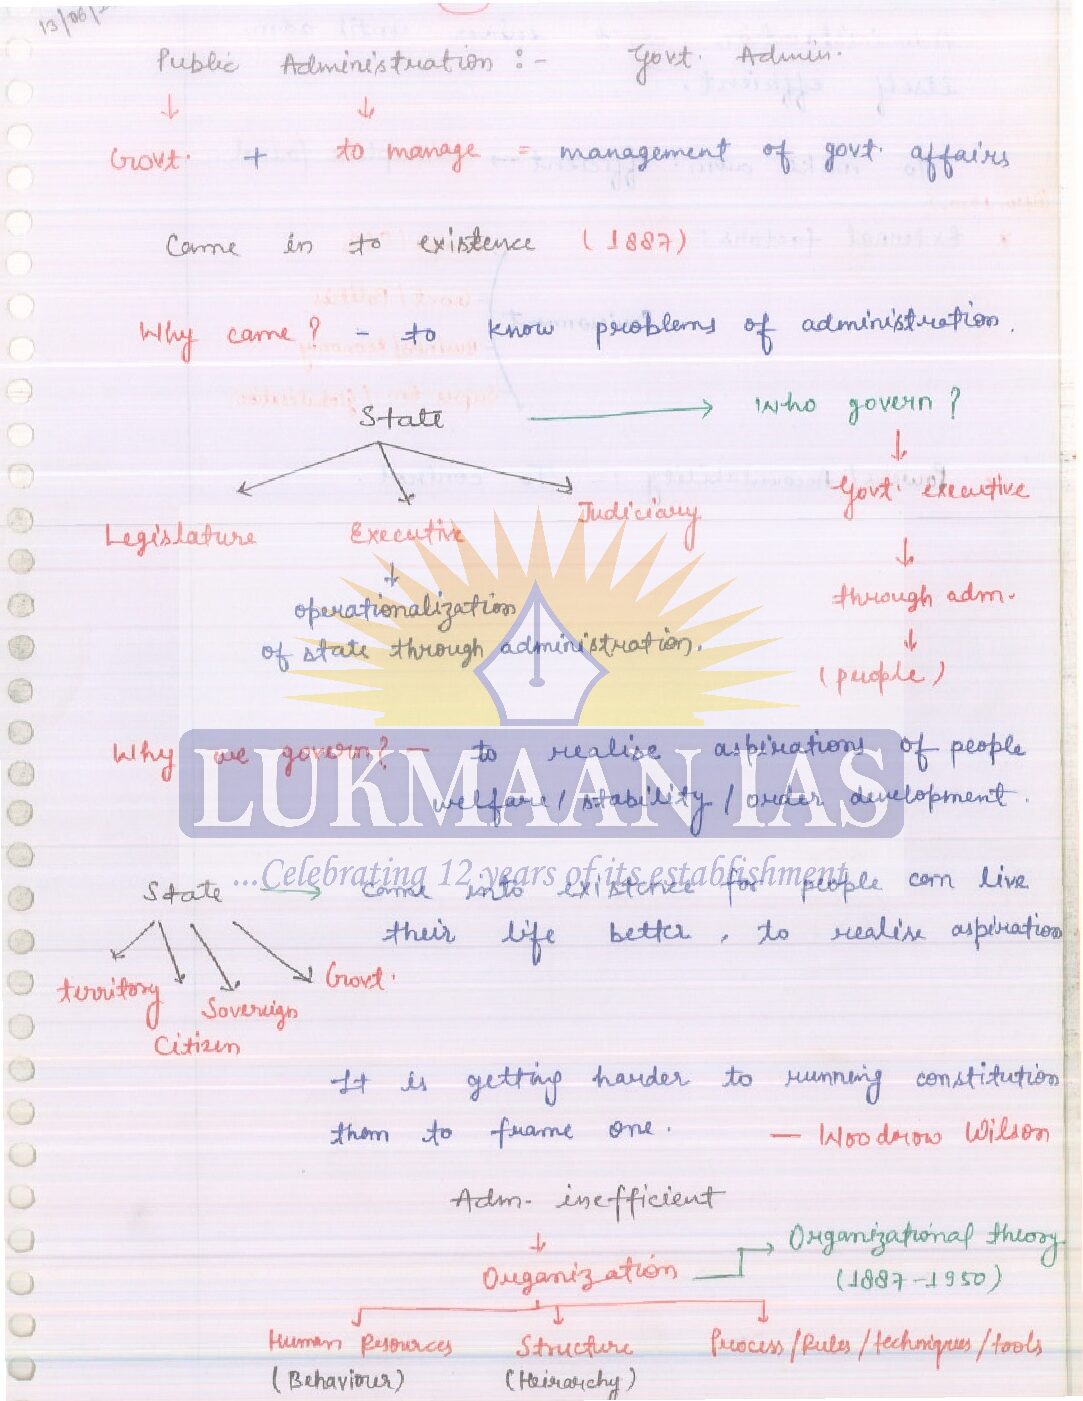 13/06/
Public Administration :- Govt. Admin.
Govt. + to manage = management of govt. affairs
Came in to existence (1887)
Why came? - to know problems of administration.
State → Who govern?
Legislature Executive Judiciary
Govt. executive
operationalization
of state through administration.
through adm.
(people)
Why we govern? — to realise aspirations of people
welfare / stability / order development.
LUKMAAN IAS
...Celebrating 12 years of its establishment
State → came into existence for people can live
their life better, to realise aspiration
territory Citizen Sovereign Govt.
It is getting harder to running constitution
them to frame one. — Woodrow Wilson
Adm. inefficient
Organization → Organizational theory
(1887-1950)
Human Resources Structure Process/Rules/techniques/tools
(Behaviour) (Heirarchy)